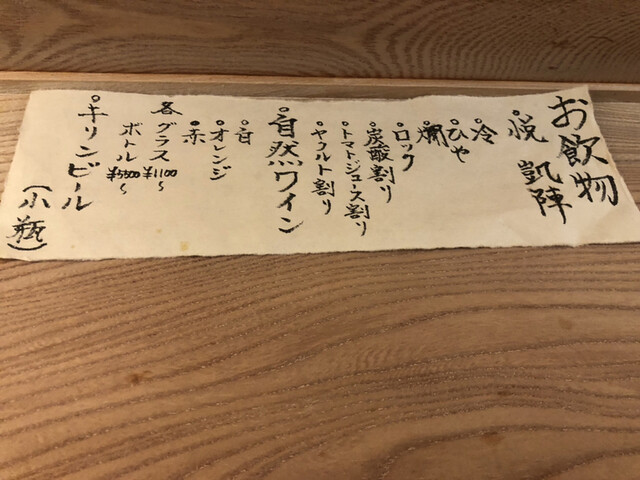 お飲物
○悦 凱陣
○冷
○ひや
○燗
○ロック
○炭酸割り
○トマトジュース割り
○ヤクルト割り
○自然ワイン
○白
○オレンジ
○赤
各グラス¥1100〜
ボトル¥5500〜
○キリンビール
(小瓶)